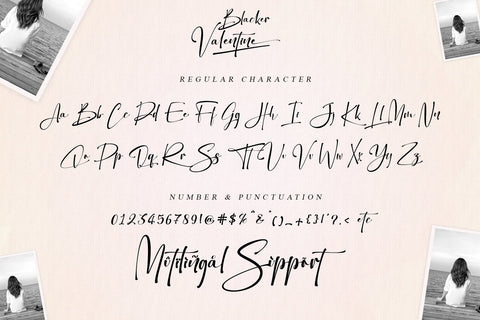 Blacker
Valentine
REGULAR CHARACTER
Aa Bb Cc Dd Ee Ff Gg Hh Ii Jj Kk Ll Mm Nn
Oo Pp Qq Rr Ss Tt Uu Vv Ww Xx Yy Zz
NUMBER & PUNCTUATION
0123456789!@#$%^&*()_+{}|"?,< etc
Motilingal Sipport